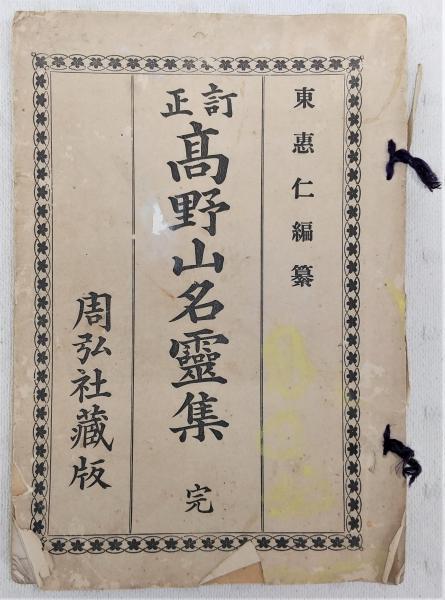 東惠仁編纂
訂正
髙野山名靈集 完
周弘社藏版